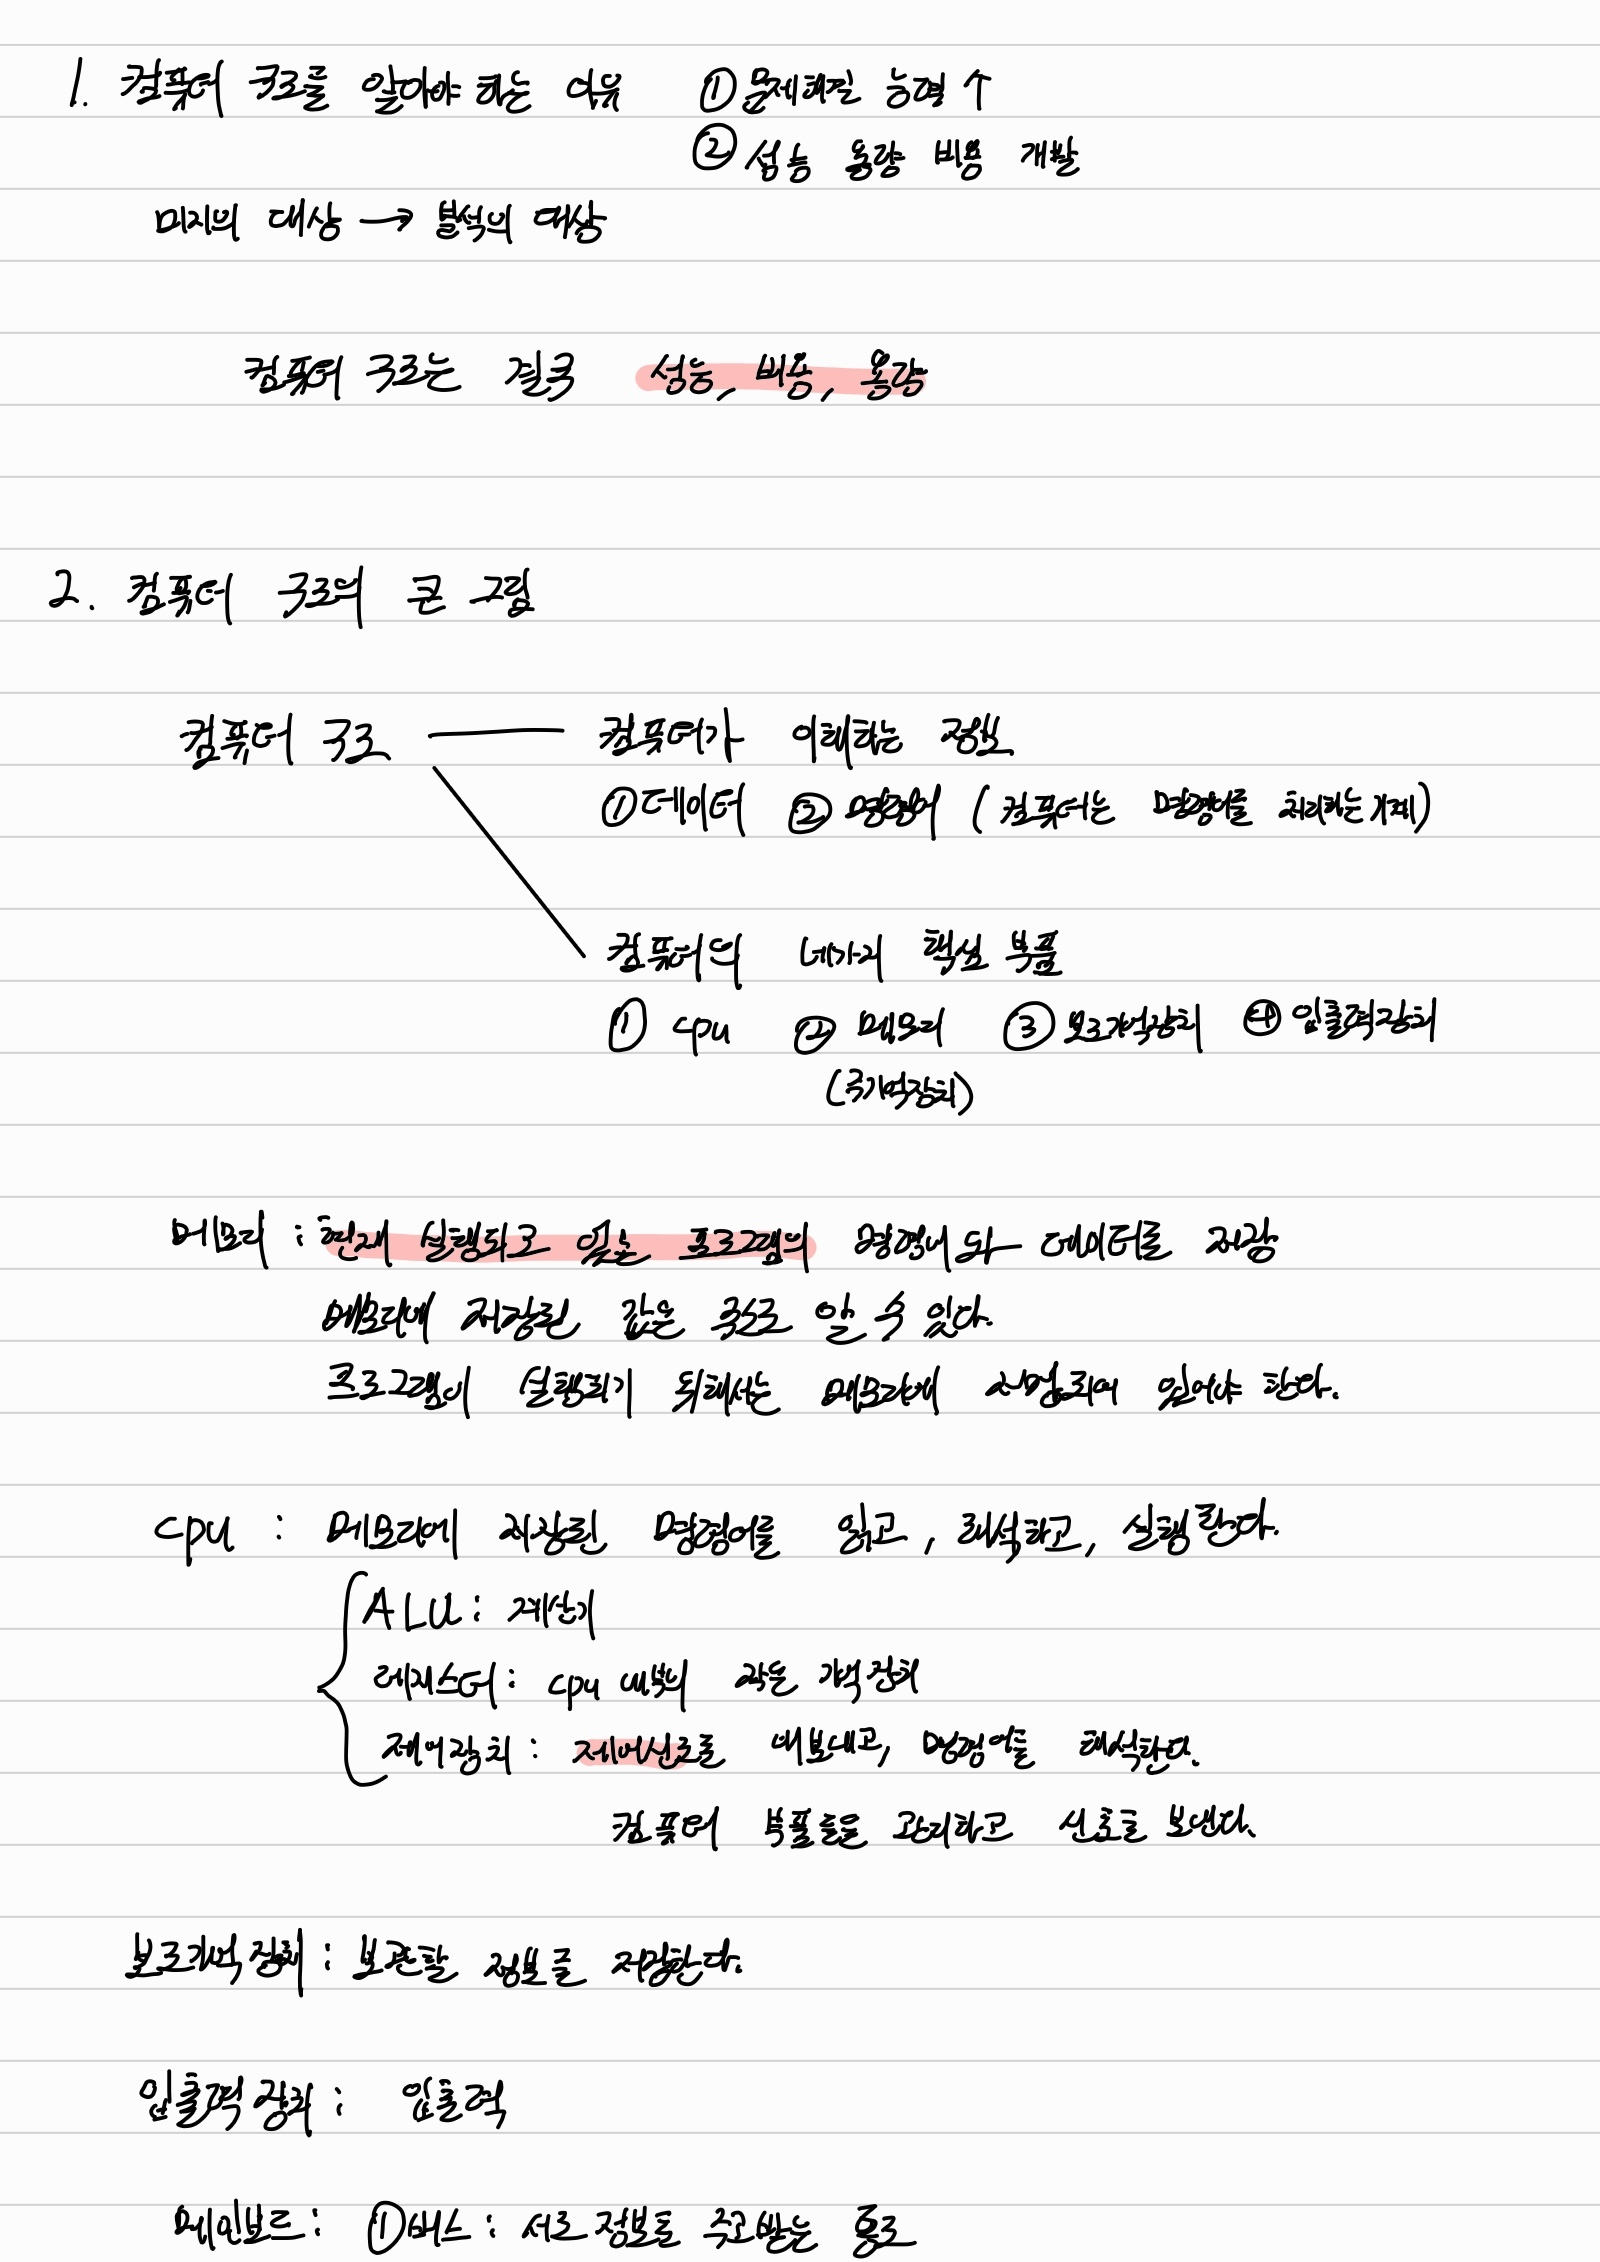 1. 컴퓨터 구조를 알아야 하는 이유 ① 문제해결 능력 ↑
② 성능 용량 비용 개발
미지의 대상 → 분석의 대상
컴퓨터 구조는 결국 성능, 비용, 용량
2. 컴퓨터 구조의 큰 그림
컴퓨터 구조 — 컴퓨터가 이해하는 정보
① 데이터 ② 명령어 (컴퓨터는 명령어를 처리하는 기계)
컴퓨터의 네가지 핵심 부품
① cpu ② 메모리 ③ 보조기억장치 ④ 입출력장치
(주기억장치)
메모리 : 현재 실행되고 있는 프로그램의 명령어와 데이터를 저장
메모리에 저장된 값은 주소로 알 수 있다.
프로그램이 실행되기 위해서는 메모리에 저장되어 있어야 한다.
cpu : 메모리에 저장된 명령어를 읽고, 해석하고, 실행한다.
ALU : 계산기
레지스터 : cpu 내부의 작은 기억장치
제어장치 : 제어신호를 내보내고, 명령어를 해석한다.
컴퓨터 부품들을 관리하고 신호를 보낸다.
보조기억장치 : 보관할 정보를 저장한다.
입출력장치 : 입출력
메인보드 : ① 버스 : 서로 정보를 주고받는 통로